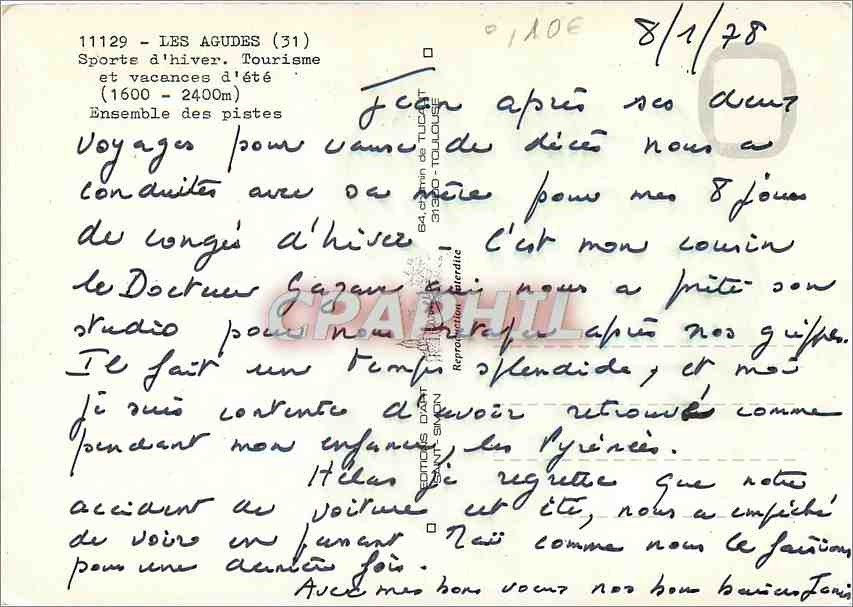 11129 - LES AGUDES (31)
Sports d'hiver. Tourisme
et vacances d'été
(1600 - 2400m)
Ensemble des pistes
0,10€
8/1/78
Jean après ses deux
voyages pour cause de décès nous a
conduites avec sa mère pour mes 8 jours
de congés d'hiver - C'est mon cousin
le Docteur qui nous a prêté son
studio pour nous retaper après nos grippes.
Il fait un temps splendide, et moi
je suis contente d'avoir retrouvé comme
pendant mon enfance, les Pyrénées.
Hélas je regrette que notre
accident de voiture cet été, nous a empêché
de voir en passant comme nous le faisions
pour une dernière fois.
Avec mes bons voeux nos bons baisers
EDITIONS D'ART
SAINT-SIMON
64, chemin de TUCAUT
31300 - TOULOUSE
Reproduction interdite
CPAPHIL